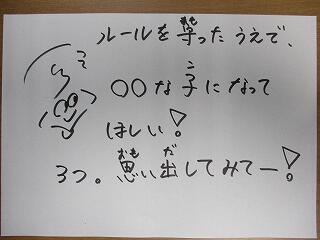 ルールを守ったうえで、
○○な子になって
ほしい!
3つ。思い出してみてー!